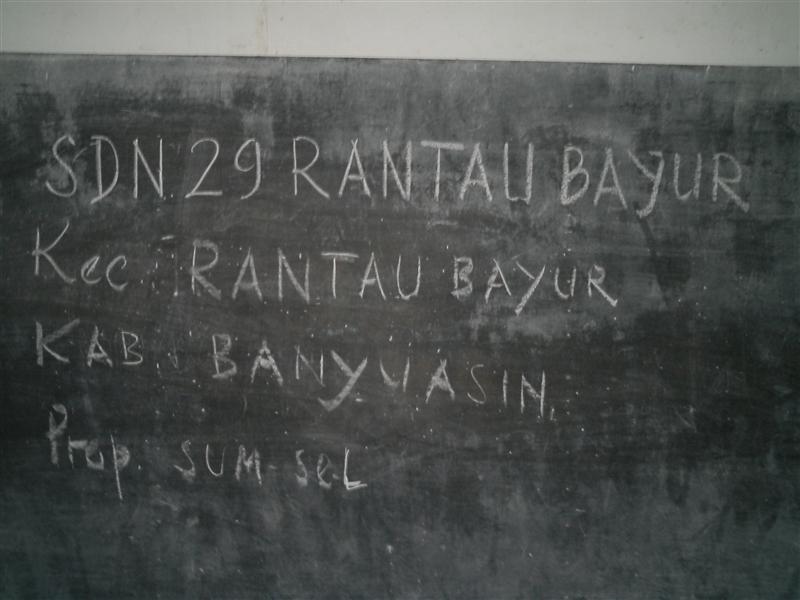 SDN 29 RANTAU BAYUR
Kec : RANTAU BAYUR
KAB : BANYUASIN.
Prop. SUM-SeL